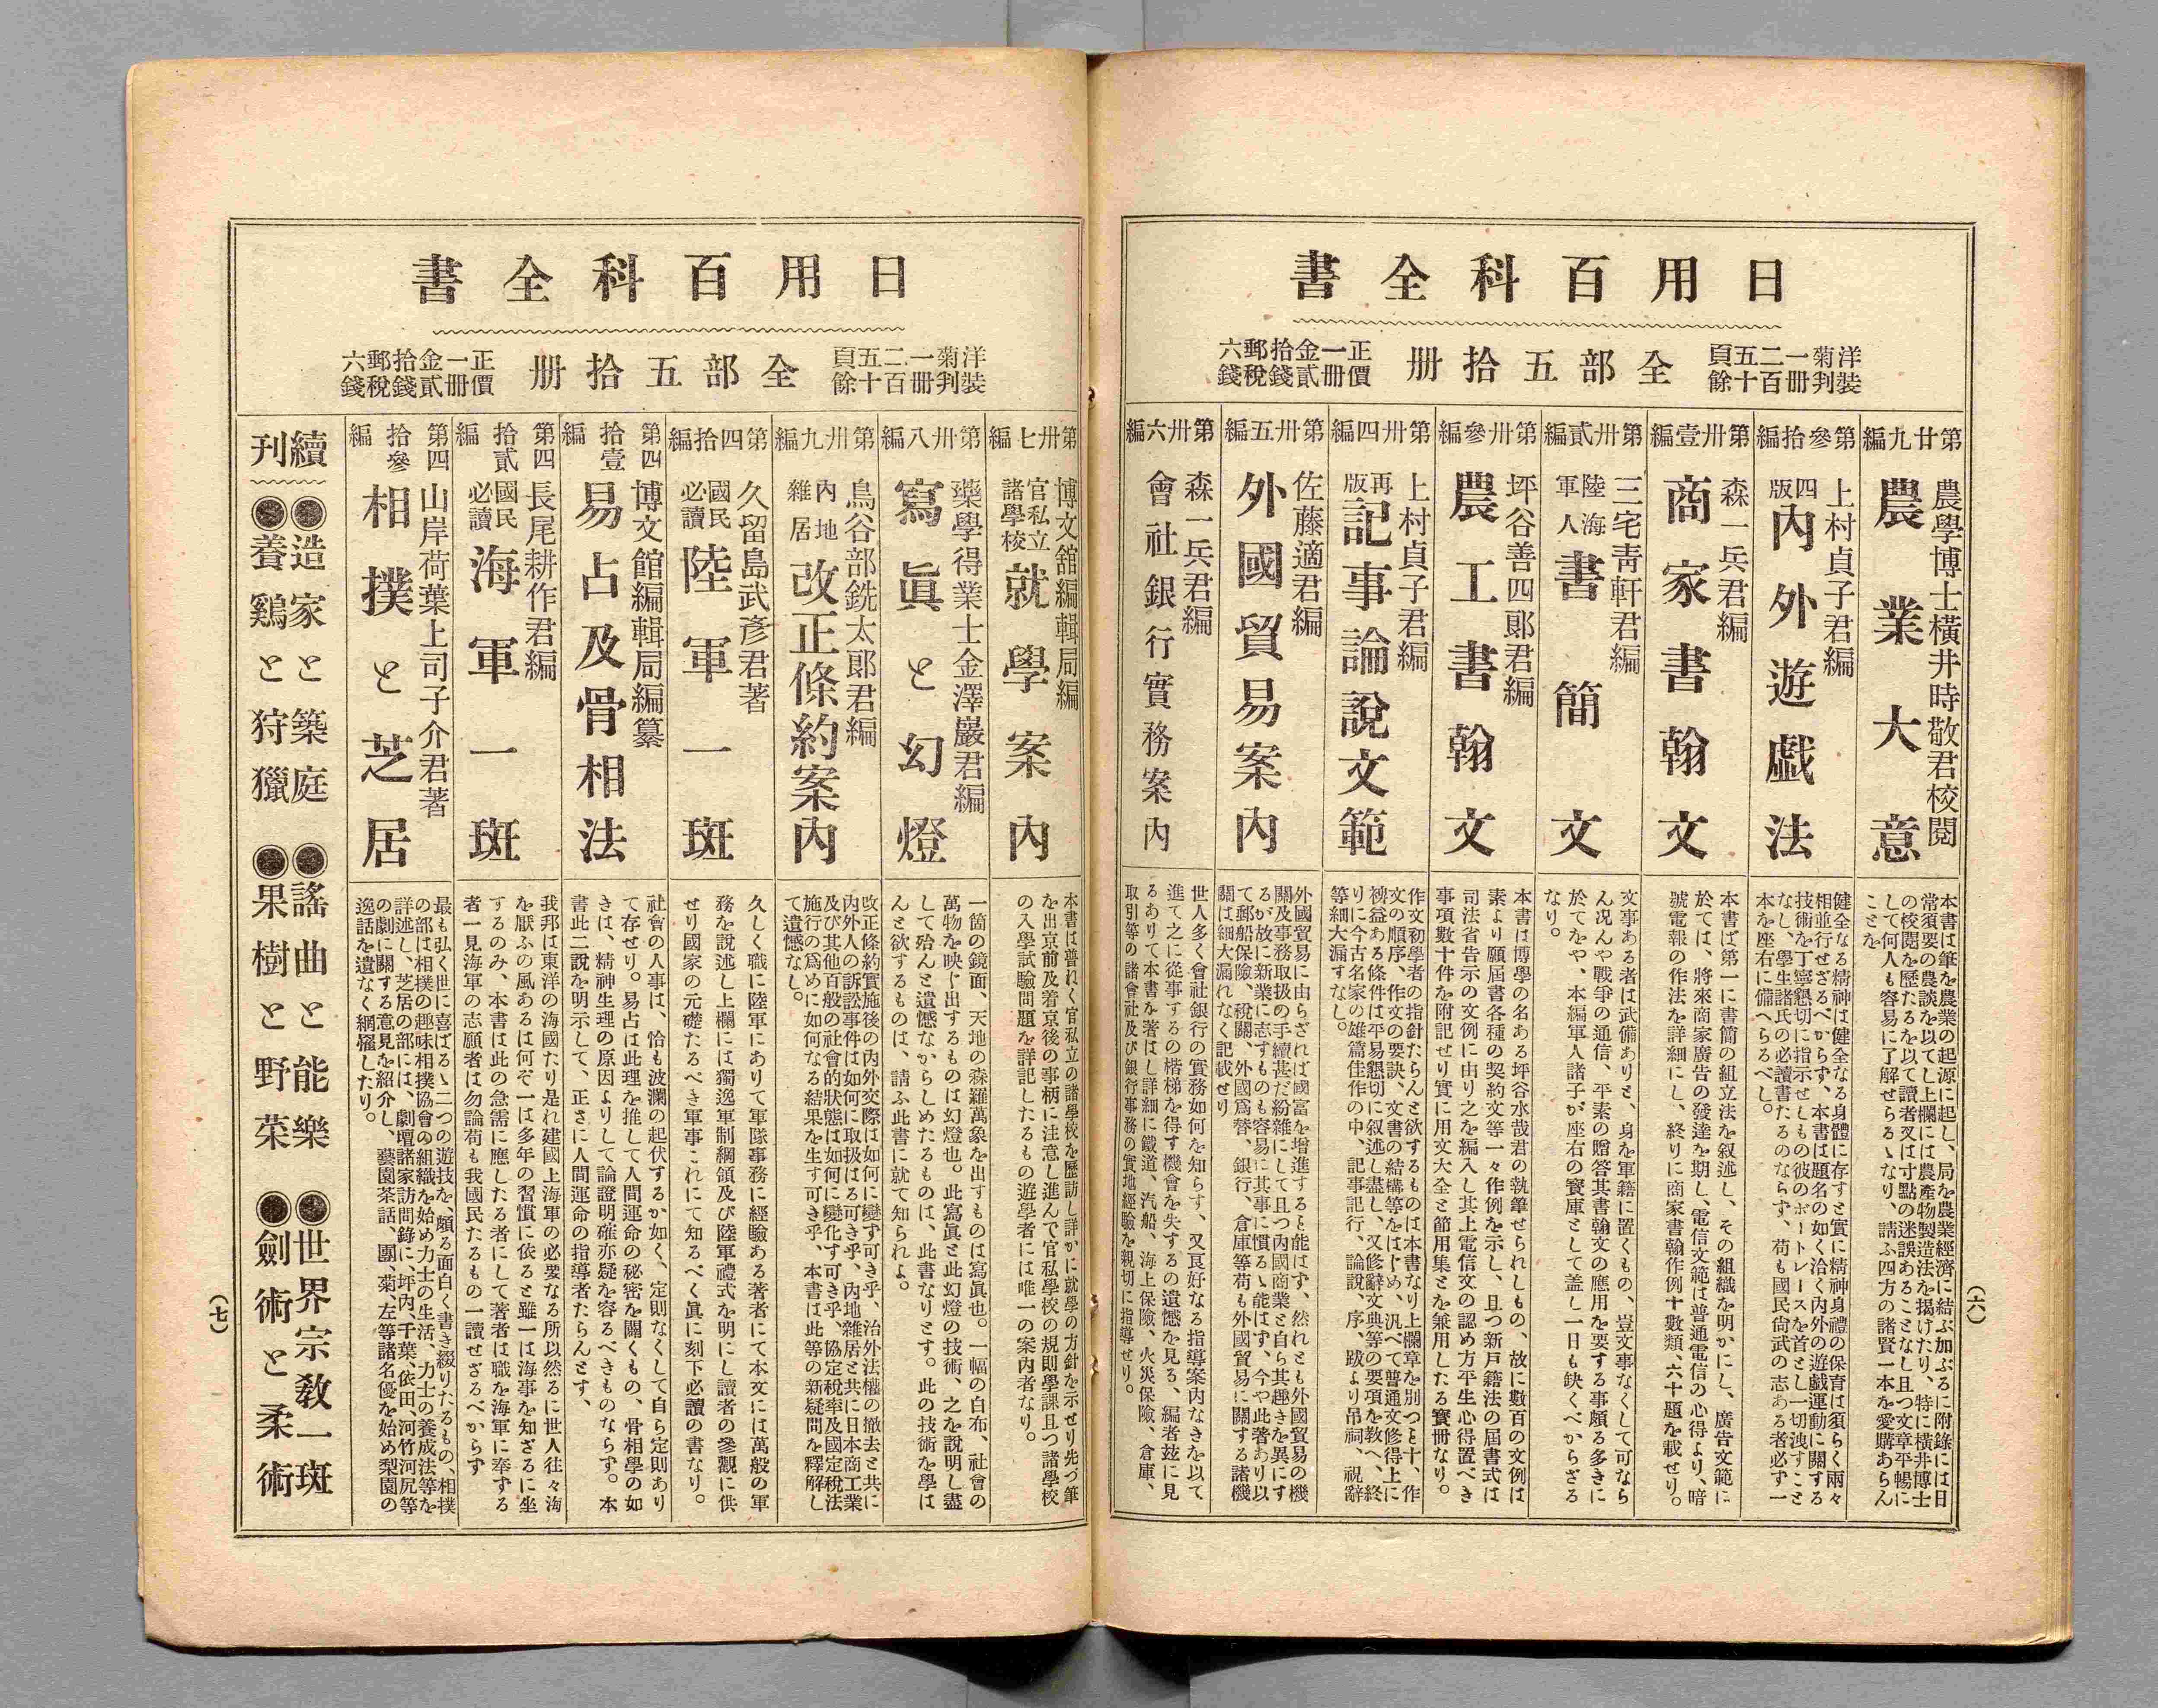 日用百科全書
洋裝
菊判
一冊
二百
五十
頁餘
全部五拾冊
正價
一冊
金貳
拾錢
郵稅
六錢
第廿九編
農學博士橫井時敬君校閱
農業大意
本書は筆を農業の起源に起し、局を農業經濟に結ぶ加ぶるに附錄には日
常須要の農談を以てし上欄には農產物製造法を揭げたり、特に橫井博士
の校閱を歷たるを以て讀者叉は寸點の迷誤あることなし且つ文章平暢に
して何人も容易に了解せらるゝなり、請ふ四方の諸賢一本を愛購あらん
ことを
第參拾編
上村貞子君編
四版
內外遊戲法
健全なる精神は健全なる身體に存すと實に精神身禮の保育は須らく兩々
相並行せざるべからず、本書は題名の如く洽く內外の遊戲運動に關する
技術を丁寧懇切に指示せしもの彼のボートレースを首とし一切洩すこと
なし、學生諸氏の必讀書たるのならず、苟も國民尙武の志ある者必ず一
本を座右に備へらるべし。
第卅壹編
森一兵君編
商家書翰文
本書ば第一に書簡の組立法を叙述し、その組織を明かにし、廣告文範に
於ては、將來商家廣告の發達を期し、電信文範は普通電信の心得より、暗
號電報の作法を詳細にし、終りに商家書翰作例十數類、六十題を載せり。
第卅貳編
三宅靑軒君編
陸海
軍人
書簡文
文事ある者は武備ありと、身を軍籍に置くもの、豈文事なくして可なら
ん况んや戰爭の通信、平素の贈答其書翰文の應用を要する事頗る多きに
於てをや、本編軍人諸子が座右の寶庫として盖し一日も缺くべからざる
なり。
第卅參編
坪谷善四郞君編
農工書翰文
本書は博學の名ある坪谷水哉君の執筆せられしもの、故に數百の文例は
素より願屆書各種の契約文等一々作例を示し、且つ新戶籍法の屆書式は
司法省告示の文例に由り之を編入し其上電信文の認め方平生心得置べき
事項數十件を附記せり實に用文大全と節用集とを兼用したる寶冊なり。
第卅四編
上村貞子君編
再版
記事論說文範
作文初學者の指針たらんと欲するものは本書なり上欄章を別つこと十、作
文の順序、作文の要訣、文書の結構等をはじめ、汎べて普通文修得上に
裨益ある條件は平易懇切に叙述し盡し、又修辭文典等の要項を敎へ、終
りに今古名家の雄篇佳作の中、記事記行、論說、序、跋より吊祠、祝辭
等細大漏すなし。
第卅五編
佐藤適君編
外國貿易案內
外國貿易に由らざれば國富を增進すると能はず、然れとも外國貿易の機
關及事務取扱の手續甚だ紛雜にして且つ內國商業と自ら其趣きを異にす
るが故に新業に志すものも容易に其事に慣るゝ能はず、今や此著あり以
て郵船保險、稅關、外國爲替、銀行、倉庫等苟も外國貿易に關する諸機
關は細大漏れなく記載せり
第卅六編
森一兵君編
會社銀行實務案內
世人多く會社銀行の實務如何を知らす、又良好なる指導案內なきを以て
進て之に從事するの楷梯を得す機會を失するの遺憾を見る、編者玆に見
るありて本書を著はし詳細に鐵道、汽船、海上保險、火災保險、倉庫、
取引等の諸會社及び銀行事務の實地經驗を親切に指導せり。
（六）
日用百科全書
洋裝
菊判
一冊
二百
五十
頁餘
全部五拾冊
正價
一冊
金貳
拾錢
郵稅
六錢
第卅七編
博文舘編輯局編
官私立
諸學校
就學案內
本書は普れく官私立の諸學校を歷訪し詳かに就學の方針を示せり先づ筆
を出京前及着京後の事柄に注意し進んで官私學校の規則學課且つ諸學校
の入學試驗問題を詳記したるもの遊學者には唯一の案內者なり。
第卅八編
藥學得業士金澤巖君編
寫眞と幻燈
一箇の鏡面、天地の森羅萬象を出すものは寫眞也。一幅の白布、社會の
萬物を映ケ出するものは幻燈也。此寫眞と此幻燈の技術、之を說明し盡
して殆んと遺憾なからしめたるものは、此書なりとす。此の技術を學は
んと欲するものは、請ふ此書に就て知られよ。
第卅九編
鳥谷部銑太郞君編
內地
雜居
改正條約案內
改正條約實施後の內外交際は如何に變ず可き乎、治外法權の撤去と共に
內外人の訴訟事件は如何に取扱はる可き乎、內地雜居と共に日本商工業
及び其他百般の社會的狀態は如何に變化す可き乎、協定稅率及國定稅法
施行の爲めに如何なる結果を生す可き乎、本書は此等の新疑問を釋解し
て遺憾なし。
第四拾編
久留島武彥君著
國民
必讀
陸軍一斑
久しく職に陸軍にありて軍隊事務に經驗ある著者にて本文には萬般の軍
務を說述し上欄には獨逸軍制綱領及び陸軍禮式を明にし讀者の參觀に供
せり國家の元礎たるべき軍事これにて知るべく眞に刻下必讀の書なり。
第四拾壹編
博文館編輯局編纂
易占及骨相法
社會の人事は、恰も波瀾の起伏するか如く、定則なくして自ら定則あり
て存せり。易占は此理を推して人間運命の秘密を闢くもの、骨相學の如
きは、精神生理の原因よりして論證明確亦疑を容るべきものならず。本
書此二說を明示して、正さに人間運命の指導者たらんとす、
第四拾貳編
長尾耕作君編
國民
必讀
海軍一斑
我邦は東洋の海國たり是れ建國上海軍の必要なる所以然るに世人往々海
を厭ふの風あるは何ぞ一は多年の習慣に依ると雖一は海事を知ざるに坐
するのみ、本書は此の急需に應したる者にして著者は職を海軍に奉ずる
者一見海軍の志願者は勿論苟も我國民たるもの一讀せざるべからず
第四拾參編
山岸荷葉上司子介君著
相撲と芝居
最も弘く世に喜ばるゝ二つの遊技を、頗る面白く書き綴りたるもの、相撲
の部は相撲の趣味相撲協會の組織を始め力士の生活、力士の養成法等を
詳述し、芝居の部には、劇壇諸家訪問錄に、坪內、千葉、依田、河竹河尻等
の劇に關する意見を紹介し、藝園茶話、團、菊、左等諸名優を始め梨園の
逸話を遺なく網羅したり。
續刊
●造家と築庭　●謠曲と能樂　●世界宗敎一斑
●養鷄と狩獵　●果樹と野菜　●劍術と柔術
（七）